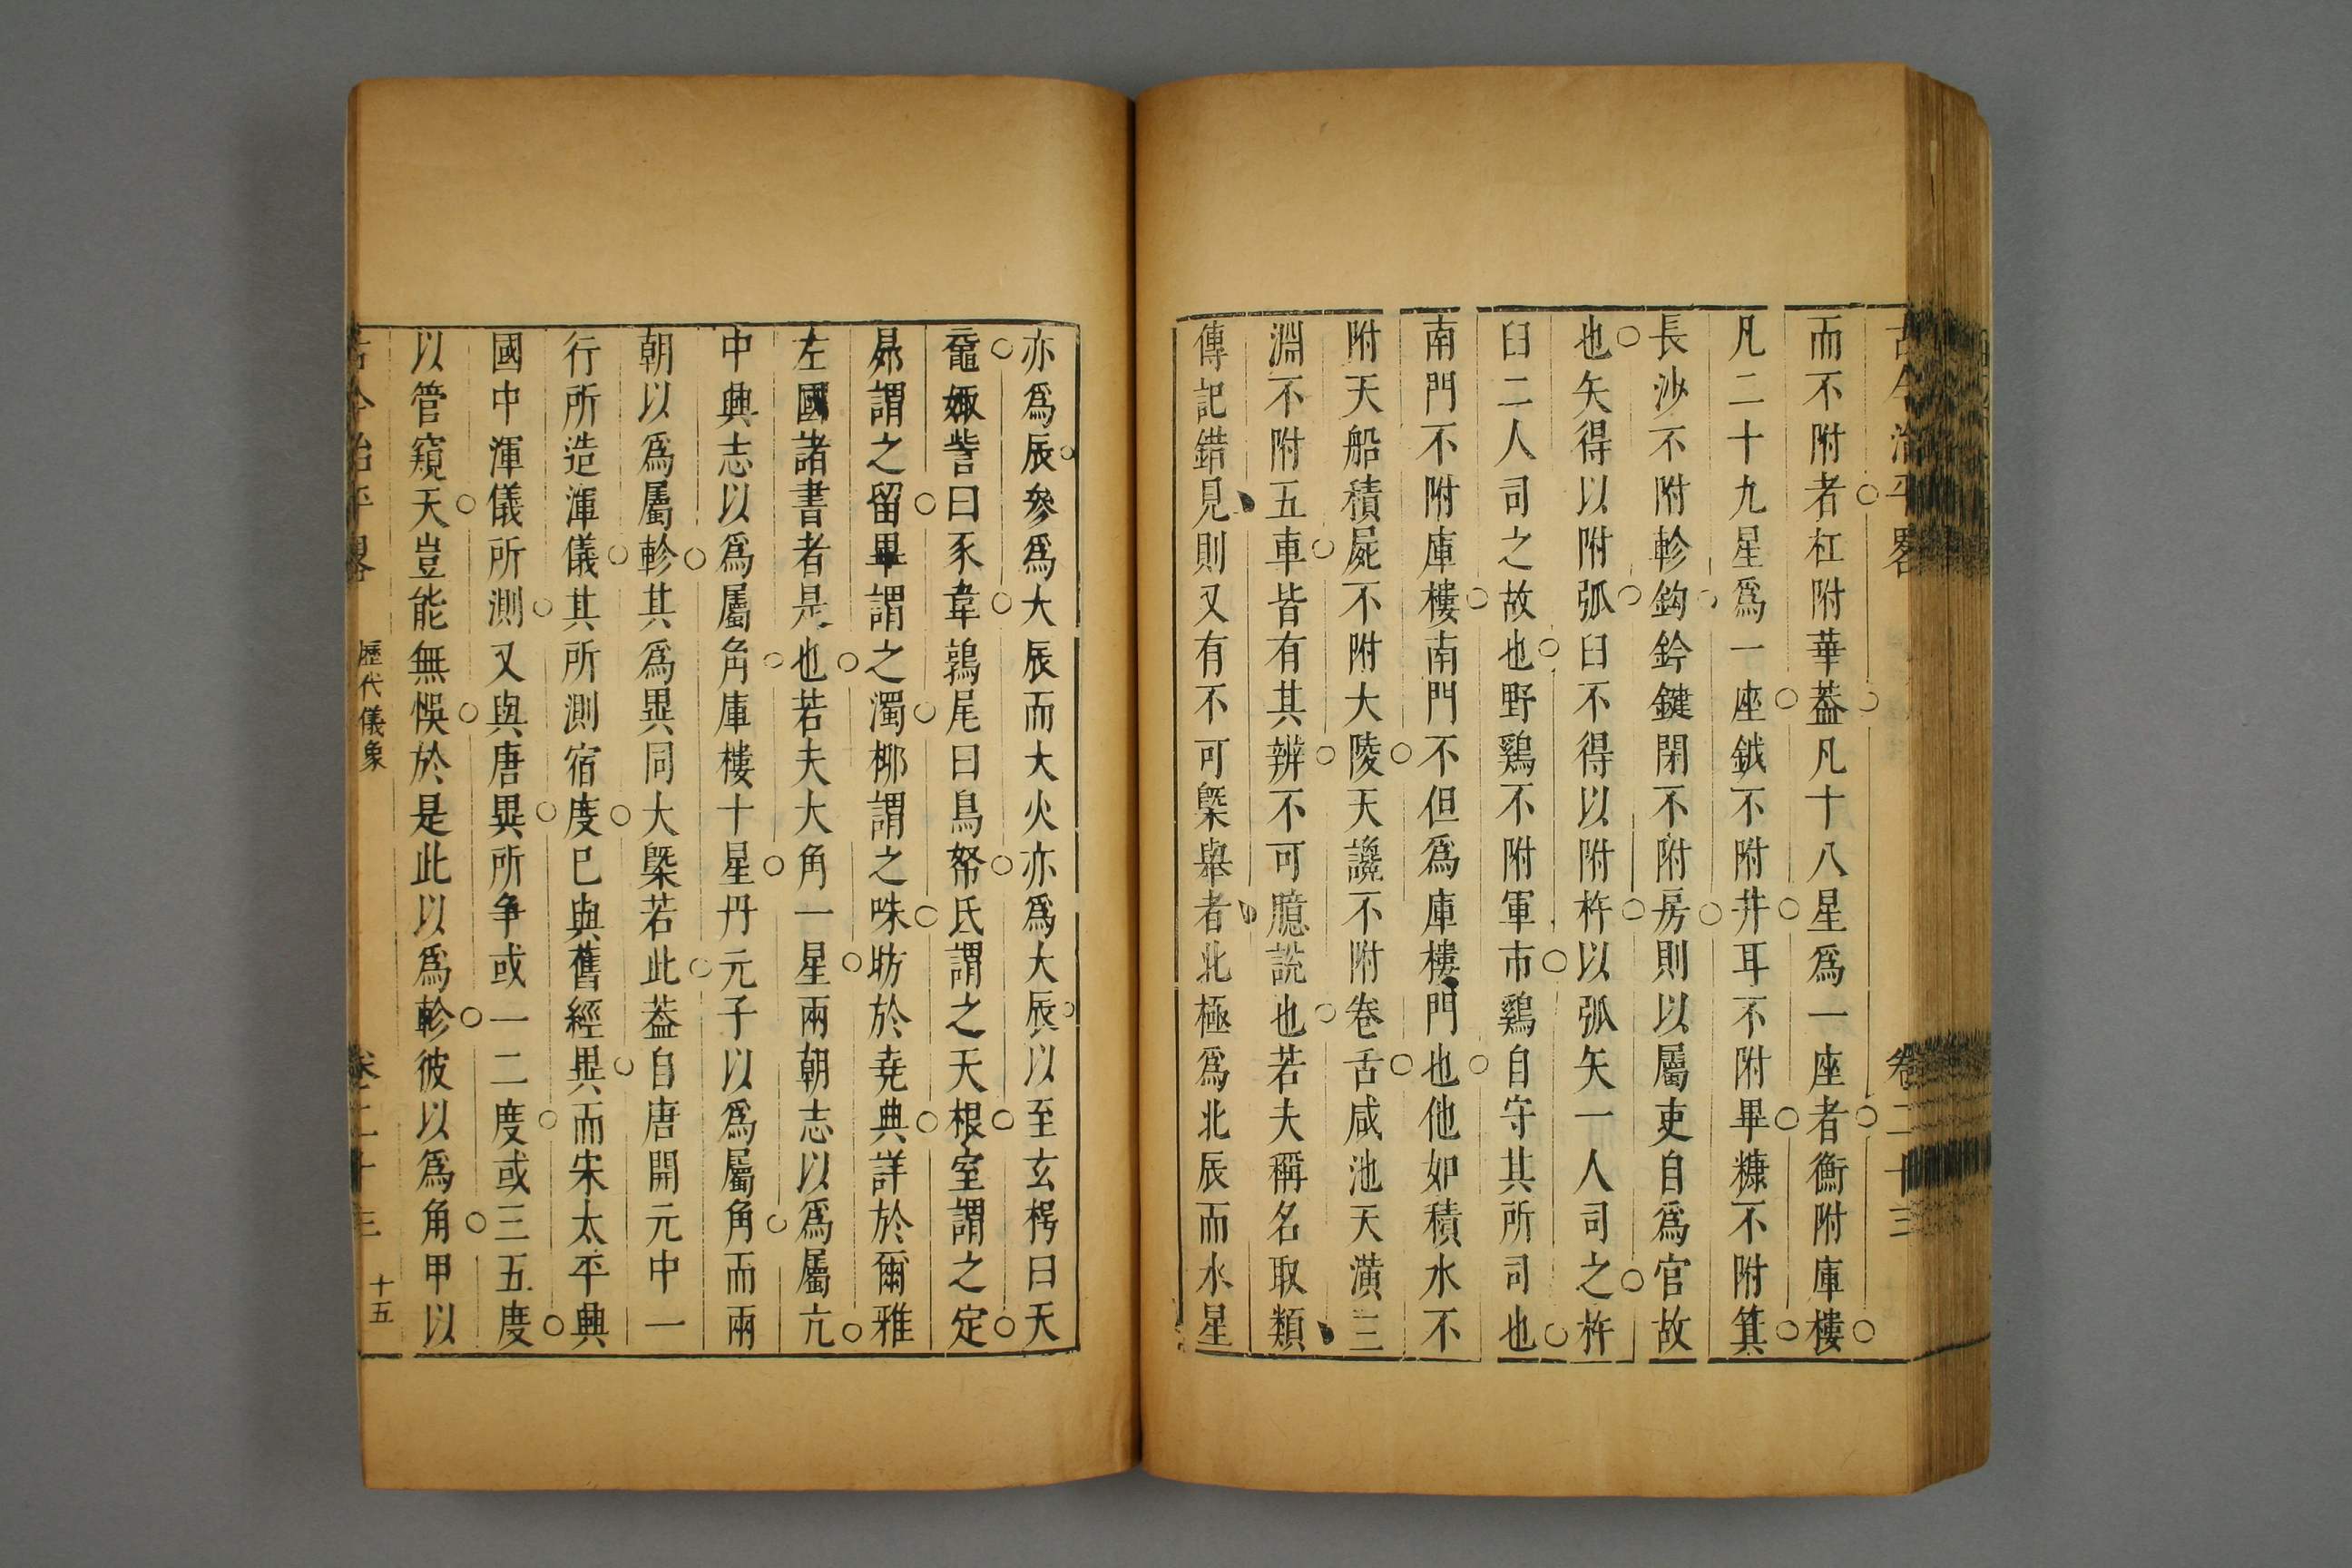 古今治平畧 卷二十三
而不附者杠附華葢凡十八星爲一座者衡附庫樓
凡二十九星爲一座鉞不附井耳不附畢糠不附箕
長沙不附軫鈎鈐鍵閉不附房則以屬吏自爲官故
也矢得以附弧臼不得以附杵以弧矢一人司之杵
臼二人司之故也野鷄不附軍市鷄自守其所司也
南門不附庫樓南門不但爲庫樓門也他如積水不
附天船積屍不附大陵天讒不附卷舌咸池天潢三
淵不附五車皆有其辨不可臆説也若夫稱名取類
傳記錯見則又有不可槩舉者北極爲北辰而水星
亦爲辰參爲大辰而大火亦爲大辰以至玄枵曰天
黿娵訾曰豕韋鶉尾曰鳥帑氐謂之天根室謂之定
昴謂之留畢謂之濁栁謂之咮昉於堯典詳於爾雅
左國諸書者是也若夫大角一星兩朝志以爲屬亢
中興志以爲屬角庫樓十星丹元子以爲屬角而兩
朝以爲屬軫其爲異同大槩若此葢自唐開元中一
行所造渾儀其所測宿度已與舊經異而宋太平興
國中渾儀所測又與唐異所争或一二度或三五度
以管窺天豈能無悞於是此以爲軫彼以爲角甲以
古今治平畧 歷代儀象 卷二十三 十五